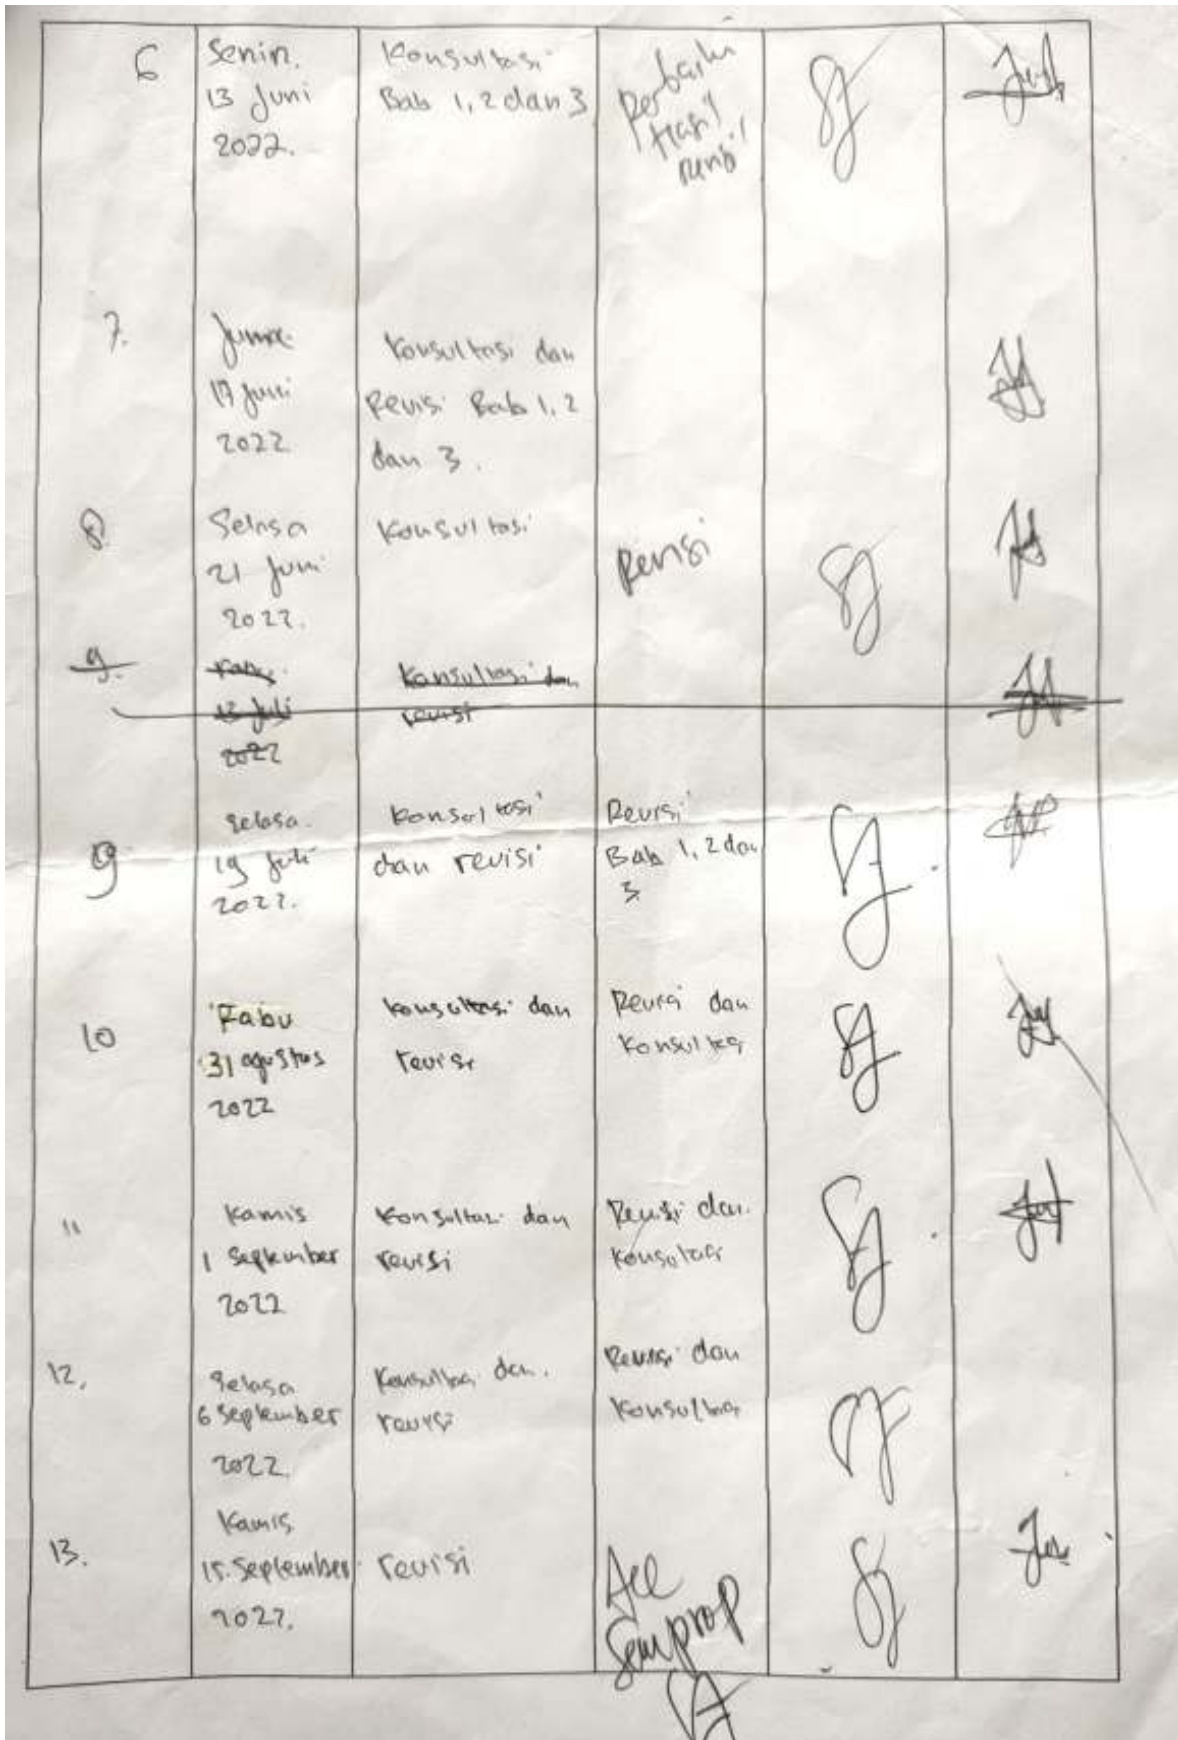 6
Senin.
13 Juni
2022.
Konsultasi
Bab 1, 2 dan 3
Perbaiki
Hasil
revisi
7.
Jumat
17 Juni
2022
Konsultasi dan
Revisi Bab 1, 2
dan 3.
8.
Selasa
21 Juni
2022.
Konsultasi
Revisi
9.
13 Juli
2022
Konsultasi dan
revisi
9
Selasa.
19 Juli
2022.
Konsultasi
dan revisi
Revisi
Bab 1, 2 dan
3
10
Rabu
31 agustus
2022
Konsultasi dan
revisi
Revisi dan
Konsultasi
11
Kamis
1 September
2022
Konsultasi dan
revisi
Revisi dan
Konsultasi
12.
Selasa
6 September
2022.
Konsultasi dan.
revisi
Revisi dan
Konsultasi
13.
Kamis
15. September
2022.
revisi
Acc
Semprop